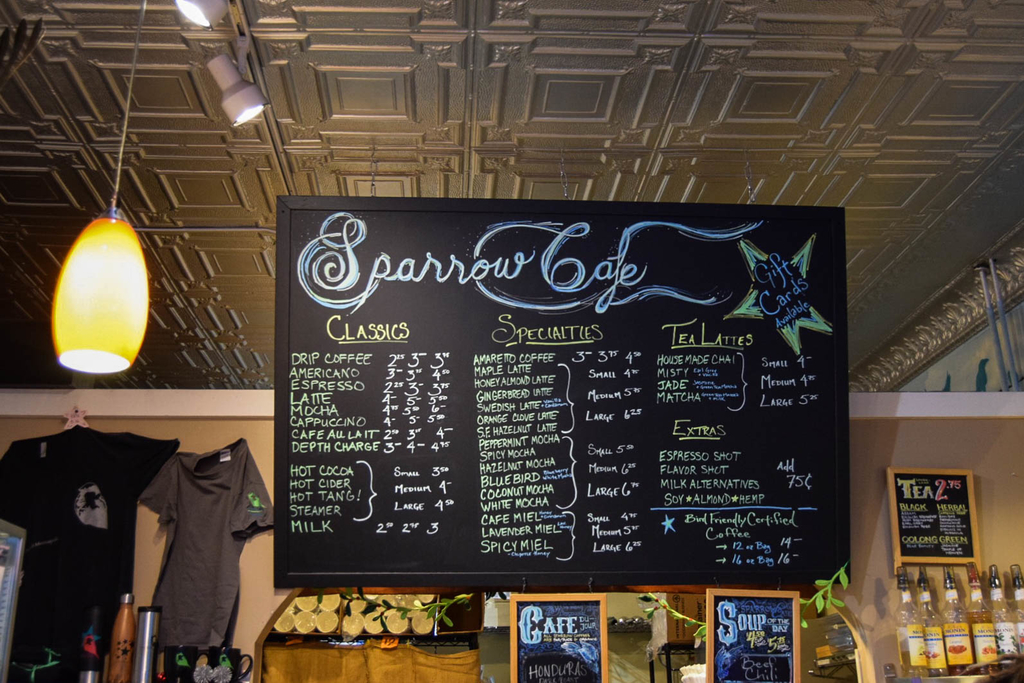 Sparrow Cafe
Gift
Cards
Available
CLASSICS
DRIP COFFEE 2.25 3- 3.75
AMERICANO
ESPRESSO 2.25 3- 3.75
LATTE 4- 5- 5.50
MOCHA
CAPPUCCINO 4- 5- 5.50
CAFE AU LAIT
DEPTH CHARGE 3- 4- 4.75
HOT COCOA
HOT CIDER
HOT TANG!
STEAMER
SMALL 3.50
MEDIUM 4-
LARGE 4.50
MILK 2.50 2.75 3
SPECIALTIES
AMARETTO COFFEE 3- 3.75 4.50
MAPLE LATTE
HONEY ALMOND LATTE
GINGERBREAD LATTE
SWEDISH LATTE
ORANGE CLOVE LATTE
S.F. HAZELNUT LATTE
SMALL 4.75
MEDIUM 5.75
LARGE 6.25
PEPPERMINT MOCHA
SPICY MOCHA
HAZELNUT MOCHA
BLUEBIRD Blueberry White Mocha
COCONUT MOCHA
WHITE MOCHA
SMALL 5.50
MEDIUM 6.25
LARGE 6.75
CAFE MIEL
LAVENDER MIEL
SPICY MIEL
SMALL 4.75
MEDIUM 5.75
LARGE 6.25
TEA LATTES
HOUSEMADE CHAI
MISTY Earl Grey
JADE
MATCHA
SMALL 4-
MEDIUM 4.75
LARGE 5.25
EXTRAS
ESPRESSO SHOT
FLAVOR SHOT
MILK ALTERNATIVES
SOY ★ ALMOND ★ HEMP
Add
75¢
Bird Friendly Certified
Coffee
→ 12 oz Bag 14-
→ 16 oz Bag 16-
TEA 2.75
BLACK HERBAL
OOLONG GREEN
CAFE DU JOUR
HONDURAS
SOUP OF THE DAY
Beef
Chili